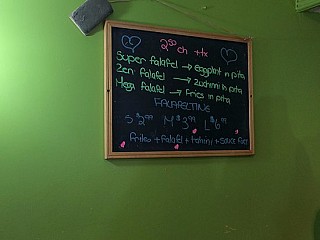 2⁵⁰ ch +tx
Super falafel → Eggplant in pita
Zen falafel → Zucchini in pita
Mega falafel → Fries in pita
FALAFELTINE
S $2⁹⁹ M $3⁹⁹ L $6
fries + falafel + tahini + sauce